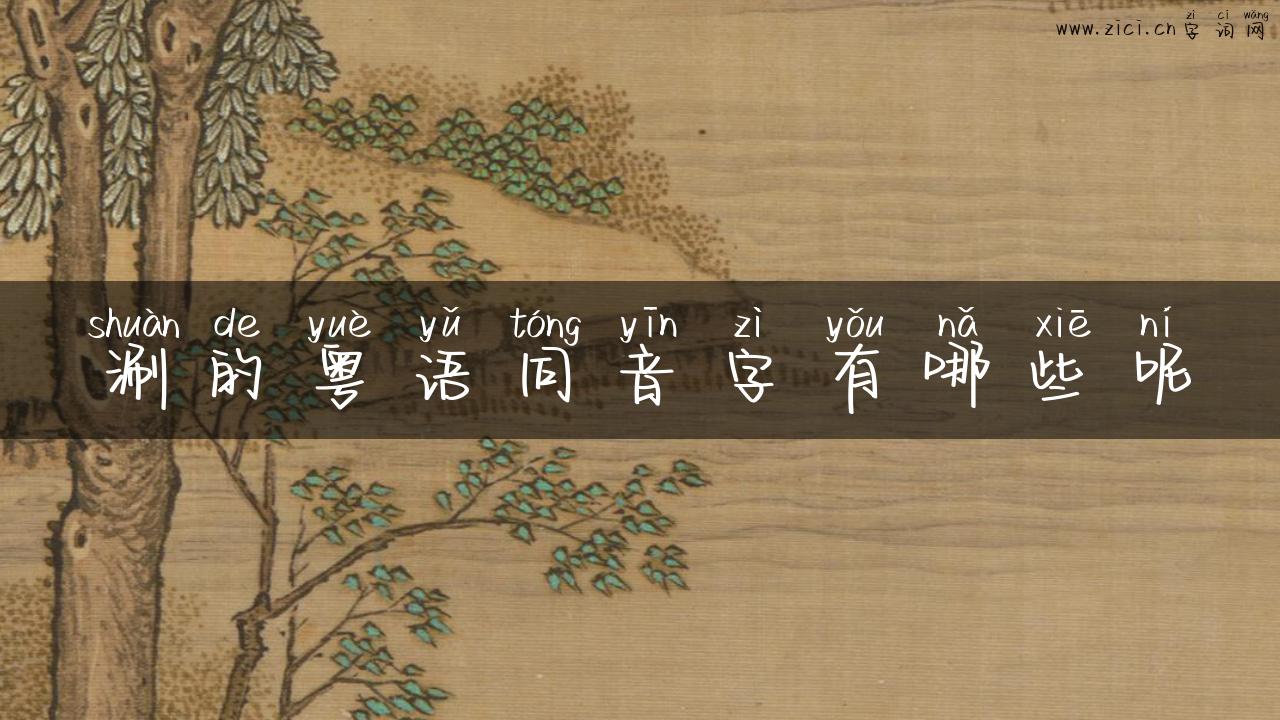 zì cí wǎng
www.zici.cn字词网
shuàn de yuè yǔ tóng yīn zì yǒu nǎ xiē ní
涮的粤语同音字有哪些呢